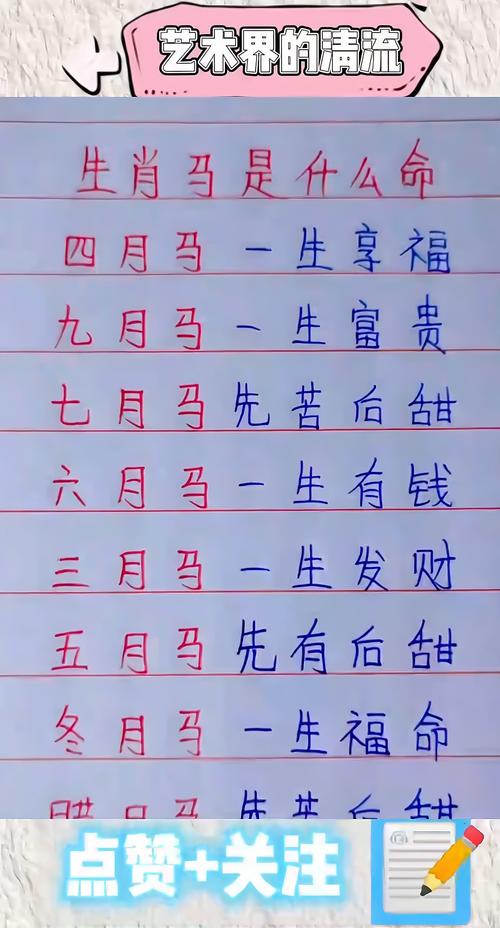 艺术界的清流
生肖马是什么命
四月马 一生享福
九月马 一生富贵
七月马 先苦后甜
六月马 一生有钱
三月马 一生发财
五月马 先有后甜
冬月马 一生福命
腊月马 先苦后甜
点赞+关注